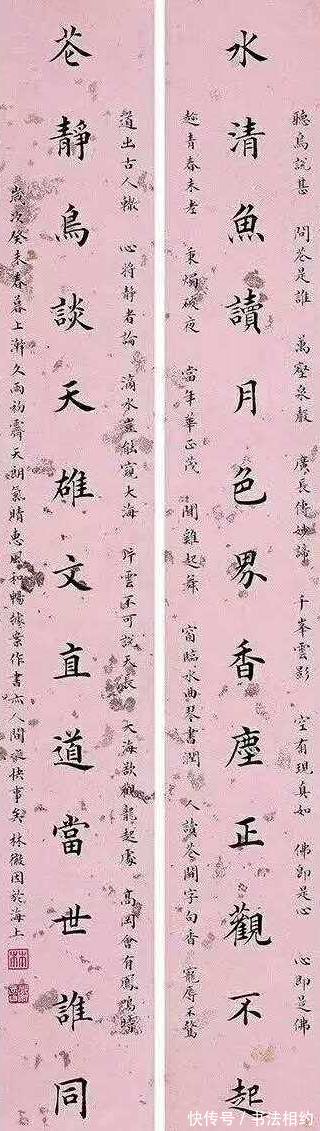 聽鳥說甚 問花是誰 萬壑泉聲 廣長傳妙諦 千峯雲影 空有現真如 佛即是心 心即是佛
水清魚讀月色界香塵正觀不起
趁青春未老 秉燭破夜 當年華正茂 聞雞起舞 窗臨水曲琴書潤 人讀花間字句香 寵辱不驚
道出古人轍 心將靜者論 滴水豈能窺大海 片雲不可說天 大海欲觀龍起處 高岡會有鳳鳴時
花靜鳥談天雄文直道當世誰同
歲次癸未春暮上澣久雨初霽天朗氣晴惠風和暢據案作書亦人間最快事矣 林徽因於海上
快传号 / 书法相约